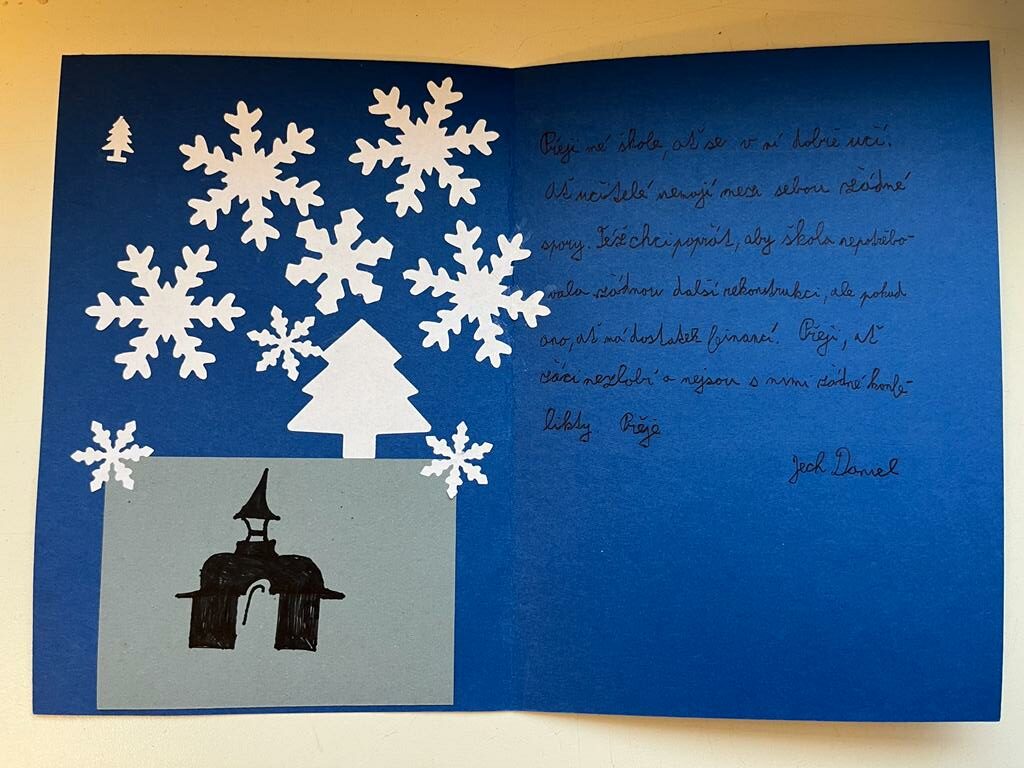 Přeji mé škole, ať se v ní dobře učí.
Ať učitelé nemají mezi sebou žádné
spory. Též chci popřát, aby škola nepotřebo-
vala žádnou další rekonstrukci, ale pokud
ano, ať má dostatek financí. Přeji, ať
žáci nezlobí a nejsou s nimi žádné konfe-
likty Přeje
Jech Daniel